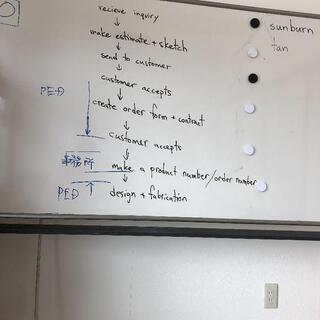 recieve inquiry
make estimate + sketch
send to customer
customer accepts
create order form + contract
customer accepts
make a product number/order number
design + fabrication
PED
事務所
PED
sunburn
tan